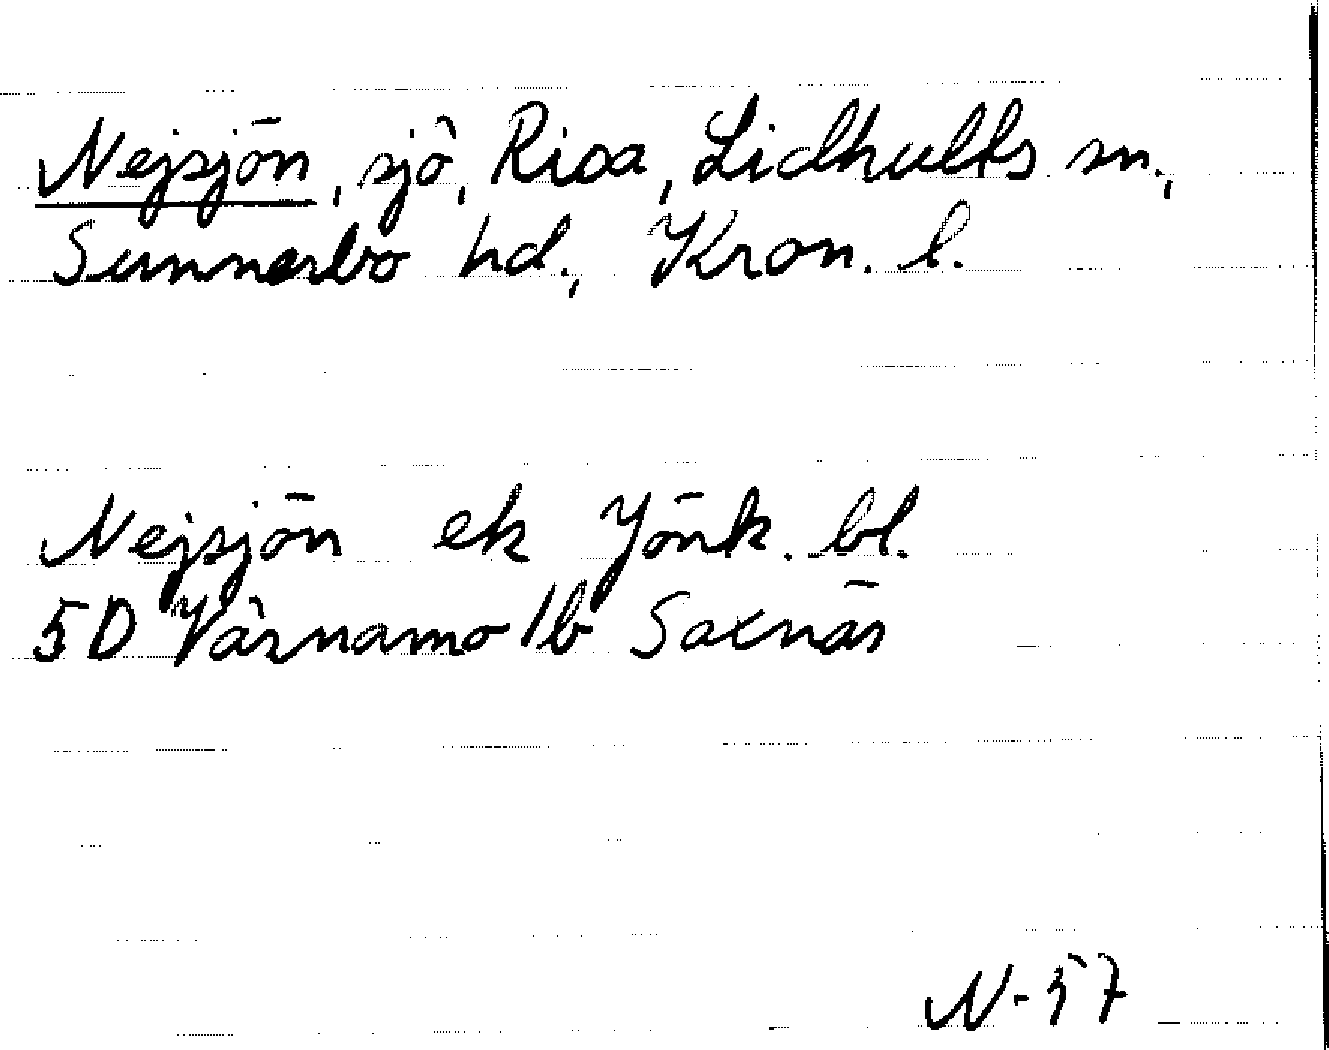 Nejsjön, sjö, Rioa, Lidhults sn.,
Sunnerbo hd., Kron. l.
Nejsjön ek Jönk. bl.
5D Värnamo 1b Saxnäs
N-57